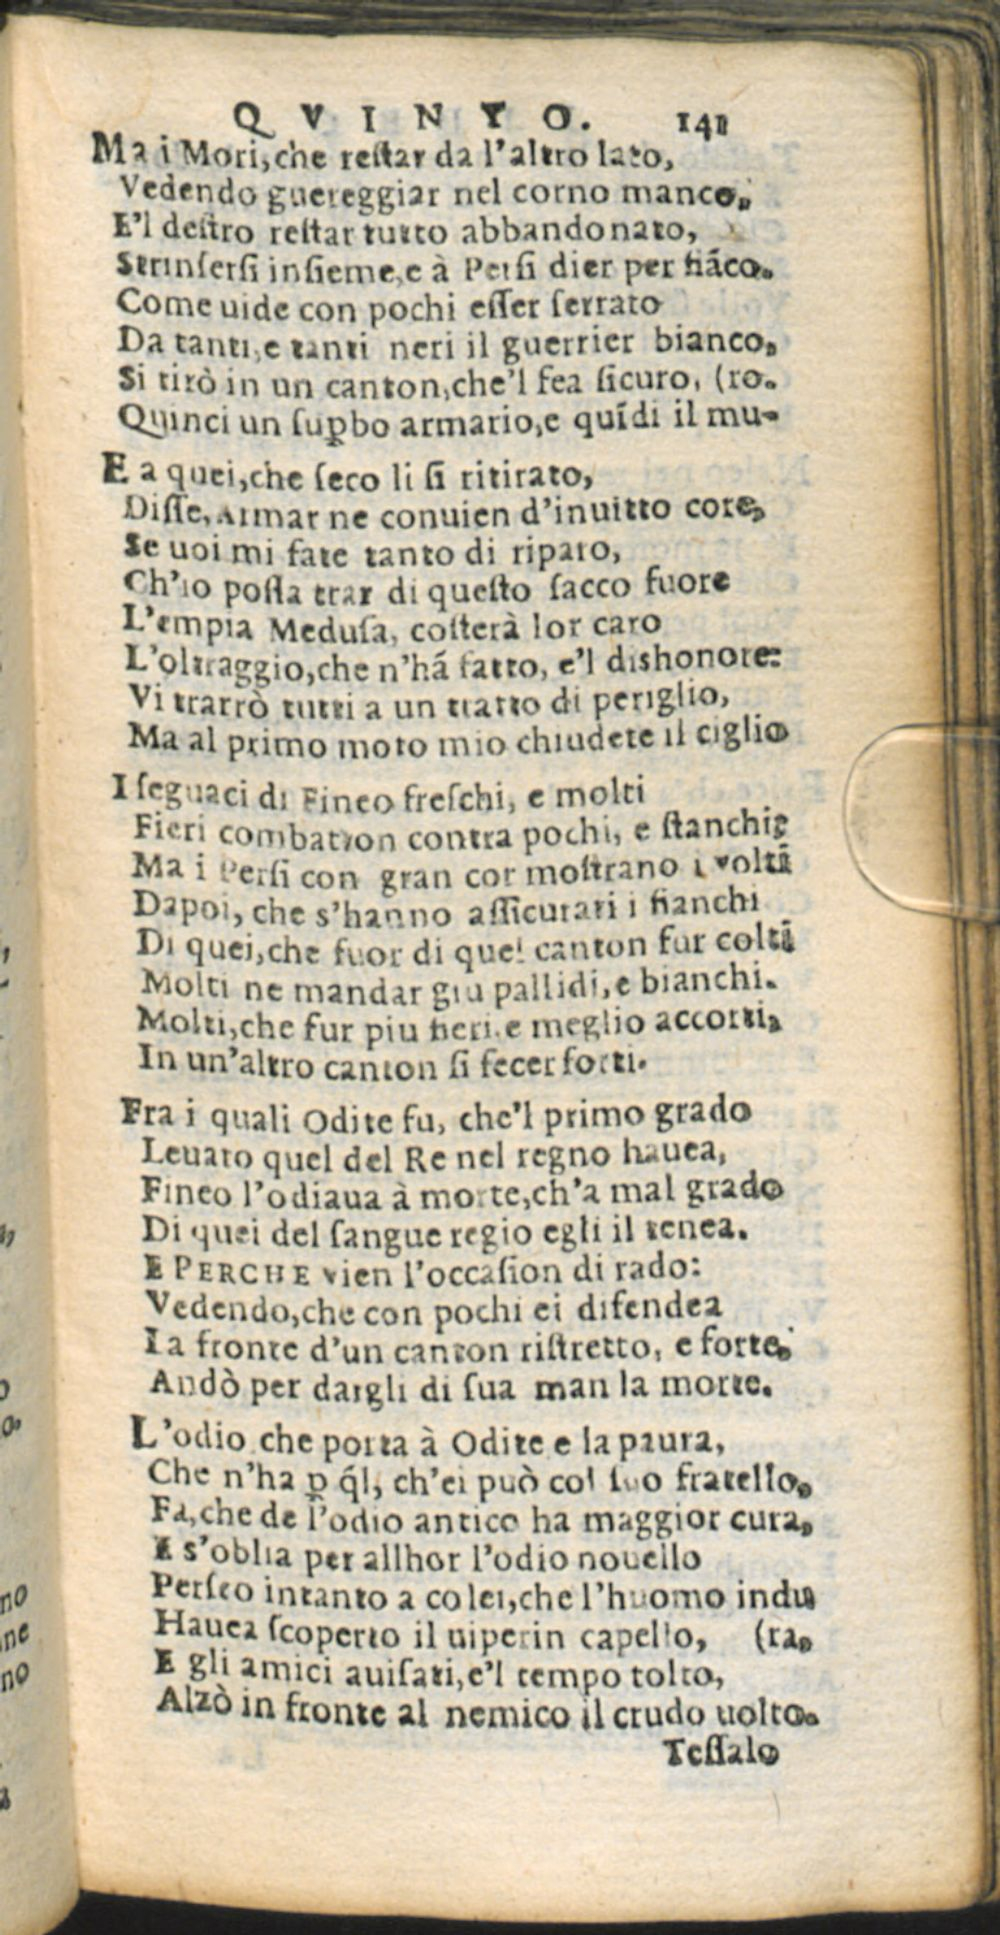 QVINTO. 141
Ma i Mori, che reſtar da l'altro lato,
Vedendo guereggiar nel corno manco,
E'l deſtro reſtar tutto abbandonato,
Strinſerſi inſieme, e à Perſi dier per fiãco.
Come uide con pochi eſſer ſerrato
Da tanti, e tanti neri il guerrier bianco,
Si tirò in un canton, che'l fea ſicuro, (ro.
Quinci un ſuꝑbo armario, e quĩdi il mu-
E a quei, che ſeco li ſi ritirato,
Diſſe, Armar ne conuien d'inuitto core,
Se uoi mi fate tanto di riparo,
Ch'io poſſa trar di queſto ſacco fuore
L'empia Meduſa, coſterà lor caro
L'oltraggio, che n'há fatto, e'l dishonore:
Vi trarrò tutti a un tratto di periglio,
Ma al primo moto mio chiudete il ciglio
I ſeguaci di Fineo freſchi, e molti
Fieri combatton contra pochi, e ſtanchi;
Ma i Perſi con gran cor moſtrano i volti
Dapoi, che s'hanno aſſicurati i fianchi
Di quei, che fuor di quel canton fur colti
Molti ne mandar giu pallidi, e bianchi.
Molti, che fur piu fieri, e meglio accorti,
In un'altro canton ſi fecer forti.
Fra i quali Odite fu, che'l primo grado
Leuato quel del Re nel regno hauea,
Fineo l'odiaua à morte, ch'a mal grado
Di quei del ſangue regio egli il tenea.
E PERCHE vien l'occaſion di rado:
Vedendo, che con pochi ei difendea
La fronte d'un canton riſtretto, e forte,
Andò per dargli di ſua man la morte.
L'odio che porta à Odite e la paura,
Che n'ha ꝑ q́l, ch'ei può col ſuo fratello,
Fa, che de l'odio antico ha maggior cura,
E s'oblia per allhor l'odio nouello
Perſeo intanto a colei, che l'huomo indu
Hauea ſcoperto il uiperin capello, (ra,
E gli amici auiſati, e'l tempo tolto,
Alzò in fronte al nemico il crudo uolto.
Teſſalo